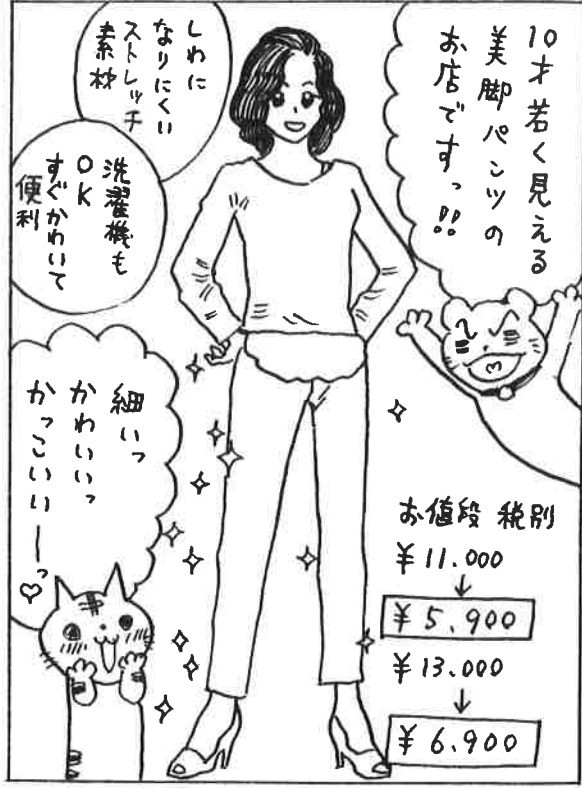 10才若く見える
美脚パンツの
お店ですっ!!
しわに
なりにくい
ストレッチ
素材
洗濯機も
OK
すぐかわいて
便利
細いっ
かわいいっ
かっこいいーっ♡
お値段 税別
¥11.000
↓
¥5.900
¥13.000
↓
¥6.900